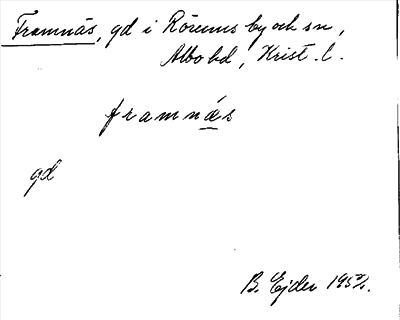 Framnäs, gd i Rörums by och sn,
Albo hd, Krist. l.
framnäs
gd
B. Ejder 1952.